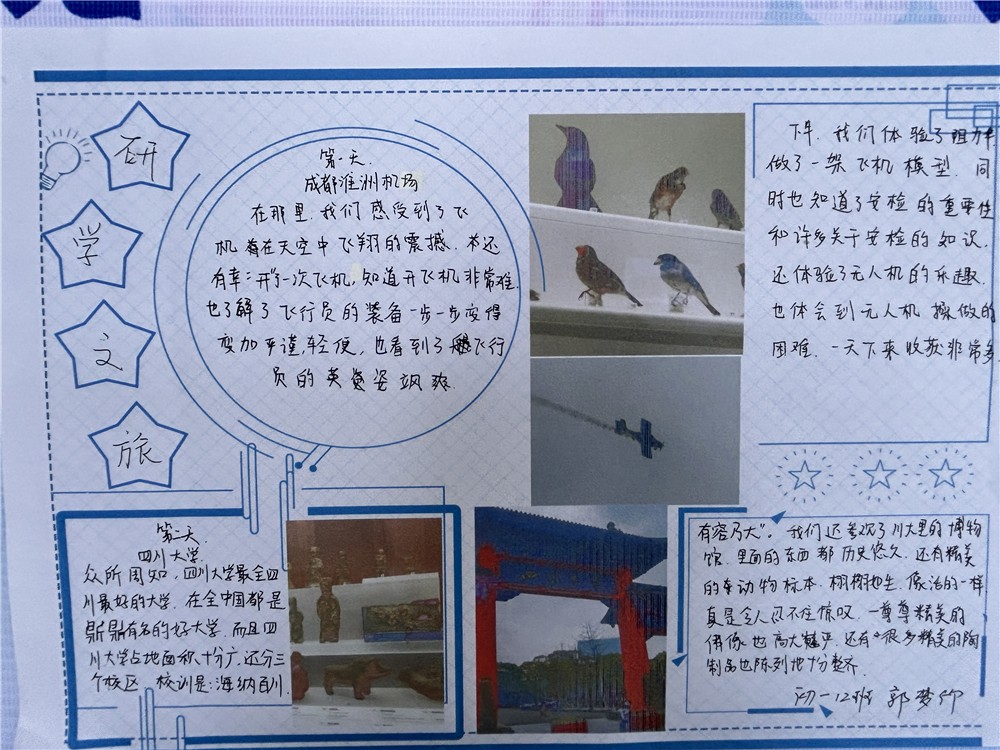 研
学
之
旅
第一天.
成都淮洲机场
在那里.我们感受到了飞
机在天空中飞翔的震撼.还
有幸"开"一次飞机,知道开飞机非常难.
也了解了飞行员的装备一步一步变得
更加平谨,轻便,也看到了飞行
员的英姿飒爽.
下午.我们体验了阻力伞.
做了一架飞机模型.同
时也知道了安检的重要性
和许多关于安检的知识.
还体验了无人机的乐趣.
也体会到无人机操做的
困难.一天下来收获非常多
第二天.
四川大学.
众所周知,四川大学是全四
川最好的大学.在全中国都是
鼎鼎有名的好大学.而且四
川大学占地面积十分广,还分三
个校区.校训是:海纳百川
有容乃大".我们还参观了川大里的博物
馆.里面的东西都历史悠久.还有精美
的动物标本.栩栩如生.像活的一样
真是令人忍不住惊叹.一尊尊精美的
佛像也高大.还有很多精美的陶
制品也陈列地十分整齐.
初一12班 郭梦